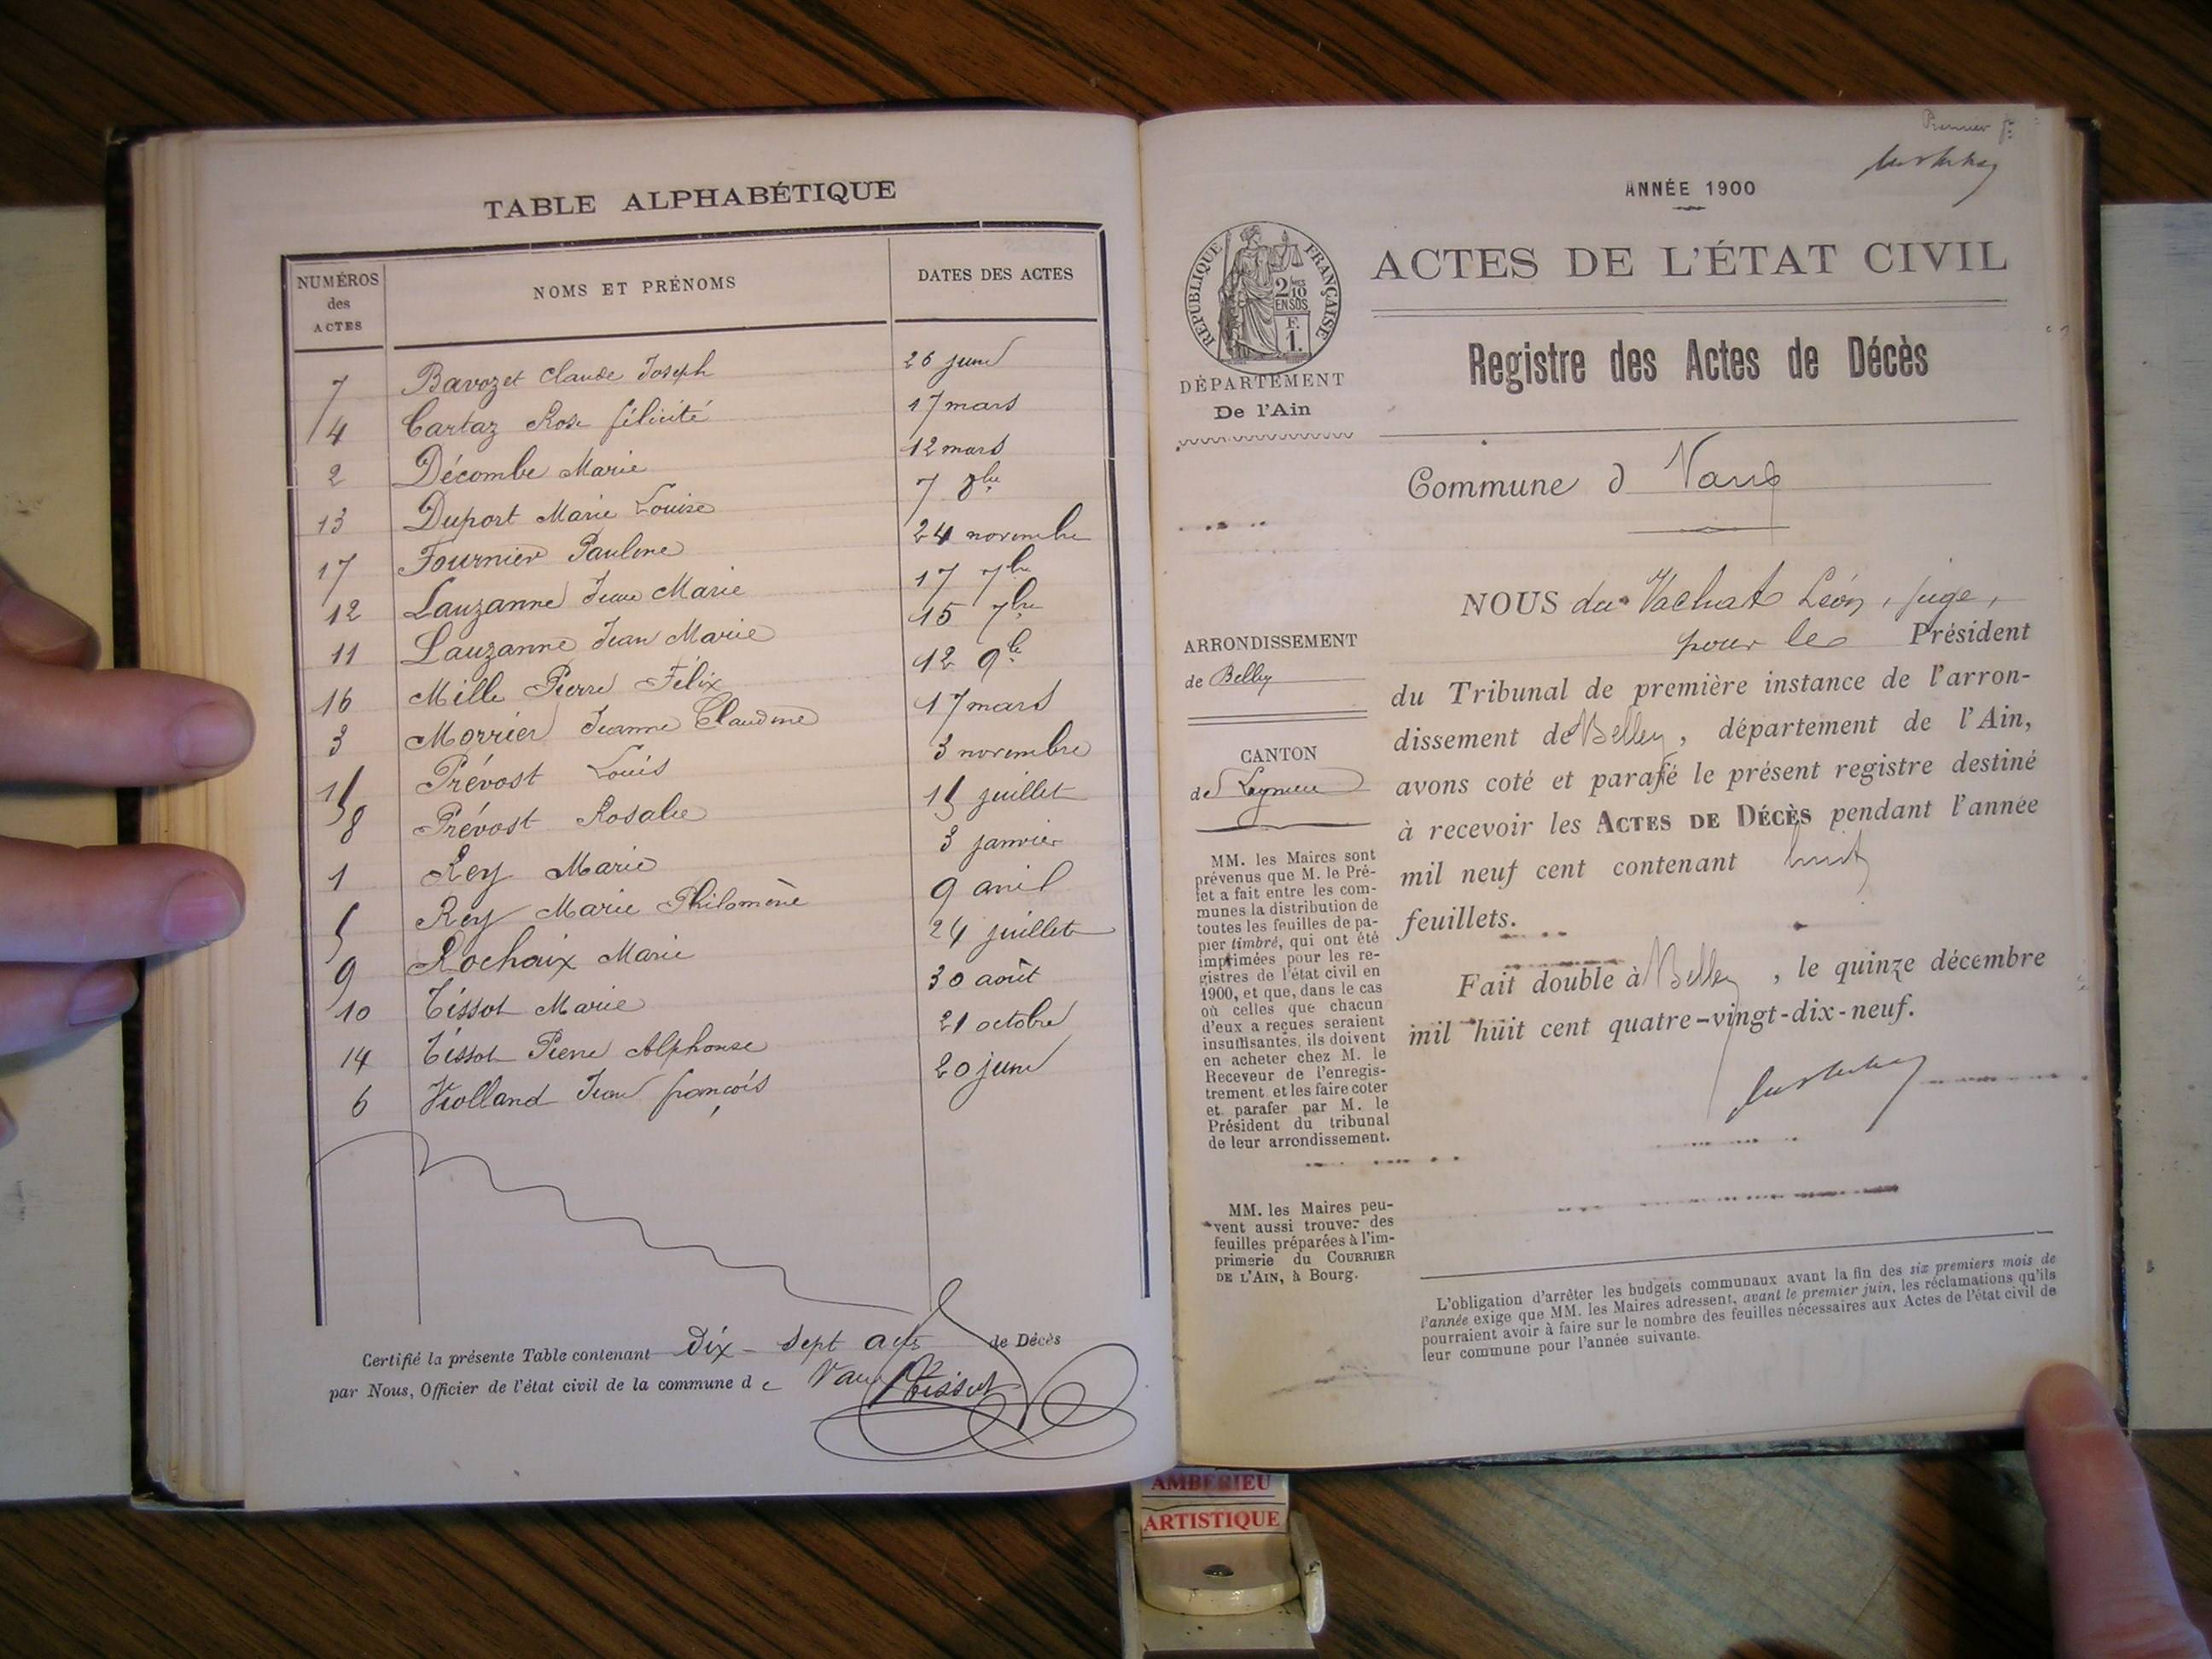 TABLE ALPHABÉTIQUE
NUMÉROS des ACTES NOMS ET PRÉNOMS DATES DES ACTES
7 Bavozet Claude Joseph 26 juin
4 Cartaz Rose félicité 17 mars
2 Décombe Marie 12 mars
13 Duport Marie Louise 7 8bre
17 Fournier Pauline 24 novembre
12 Lauzanne Jean Marie 17 7bre
11 Lauzanne Jean Marie 15 7bre
16 Mille Pierre Félix 12 9bre
3 Morrier Jeanne Claudine 17 mars
15 Prévost Louis 3 novembre
8 Prévost Rosalie 15 juillet
1 Rey Marie 3 janvier
5 Rey Marie Philomène 9 avril
9 Rochaix Marie 24 juillet
10 Tissot Marie 30 août
14 Tissot Pierre Alphonse 21 octobre
6 Violland Jean françois 20 juin
Certifié la présente Table contenant Dix-Sept actes de Décès
par Nous, Officier de l'état civil de la commune de Vaux Tissot
Premier
ANNÉE 1900
RÉPUBLIQUE FRANÇAISE
2/10
EN SUS
F.
1.
ACTES DE L'ÉTAT CIVIL
DÉPARTEMENT
De l'Ain
Registre des Actes de Décès
Commune d Vaux
ARRONDISSEMENT
de Belley
CANTON
de Lagnieu
MM. les Maires sont
prévenus que M. le Pré-
fet a fait entre les com-
munes la distribution de
toutes les feuilles de pa-
pier timbré, qui ont été
imprimées pour les re-
gistres de l'état civil en
1900, et que, dans le cas
où celles que chacun
d'eux a reçues seraient
insuffisantes, ils doivent
en acheter chez M. le
Receveur de l'enregis-
trement et les faire coter
et parafer par M. le
Président du tribunal
de leur arrondissement.
MM. les Maires peu-
vent aussi trouver des
feuilles préparées à l'im-
primerie du COURRIER
DE L'AIN, à Bourg.
NOUS du Vachat Léon, juge,
pour le Président
du Tribunal de première instance de l'arron-
dissement de Belley, département de l'Ain,
avons coté et parafé le présent registre destiné
à recevoir les ACTES DE DÉCÈS pendant l'année
mil neuf cent contenant huit
feuillets.
Fait double à Belley, le quinze décembre
mil huit cent quatre-vingt-dix-neuf.
L'obligation d'arrêter les budgets communaux avant la fin des six premiers mois de
l'année exige que MM. les Maires adressent, avant le premier juin, les réclamations qu'ils
pourraient avoir à faire sur le nombre des feuilles nécessaires aux Actes de l'état civil de
leur commune pour l'année suivante.
AMBERIEU
ARTISTIQUE